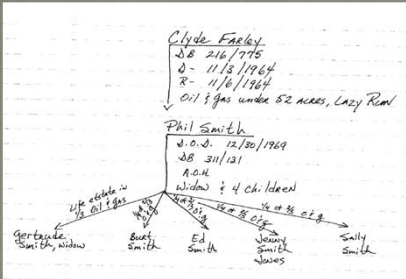 Clyde Farley
DB 216/775
D- 11/3/1964
R- 11/6/1964
Oil & gas under 52 acres, Lazy Run
Phil Smith
D.O.D. 12/30/1969
DB 311/131
A.O.H.
Widow & 4 children
Life estate in
1/3 Oil & gas
1/4 of 2/3
O&g
1/4 of 2/3 O&g
1/4 of 2/3 O&g
1/4 of 2/3 O&g
Gertrude
Smith, widow
Burt
Smith
Ed
Smith
Jenny
Smith
Jones
Sally
Smith